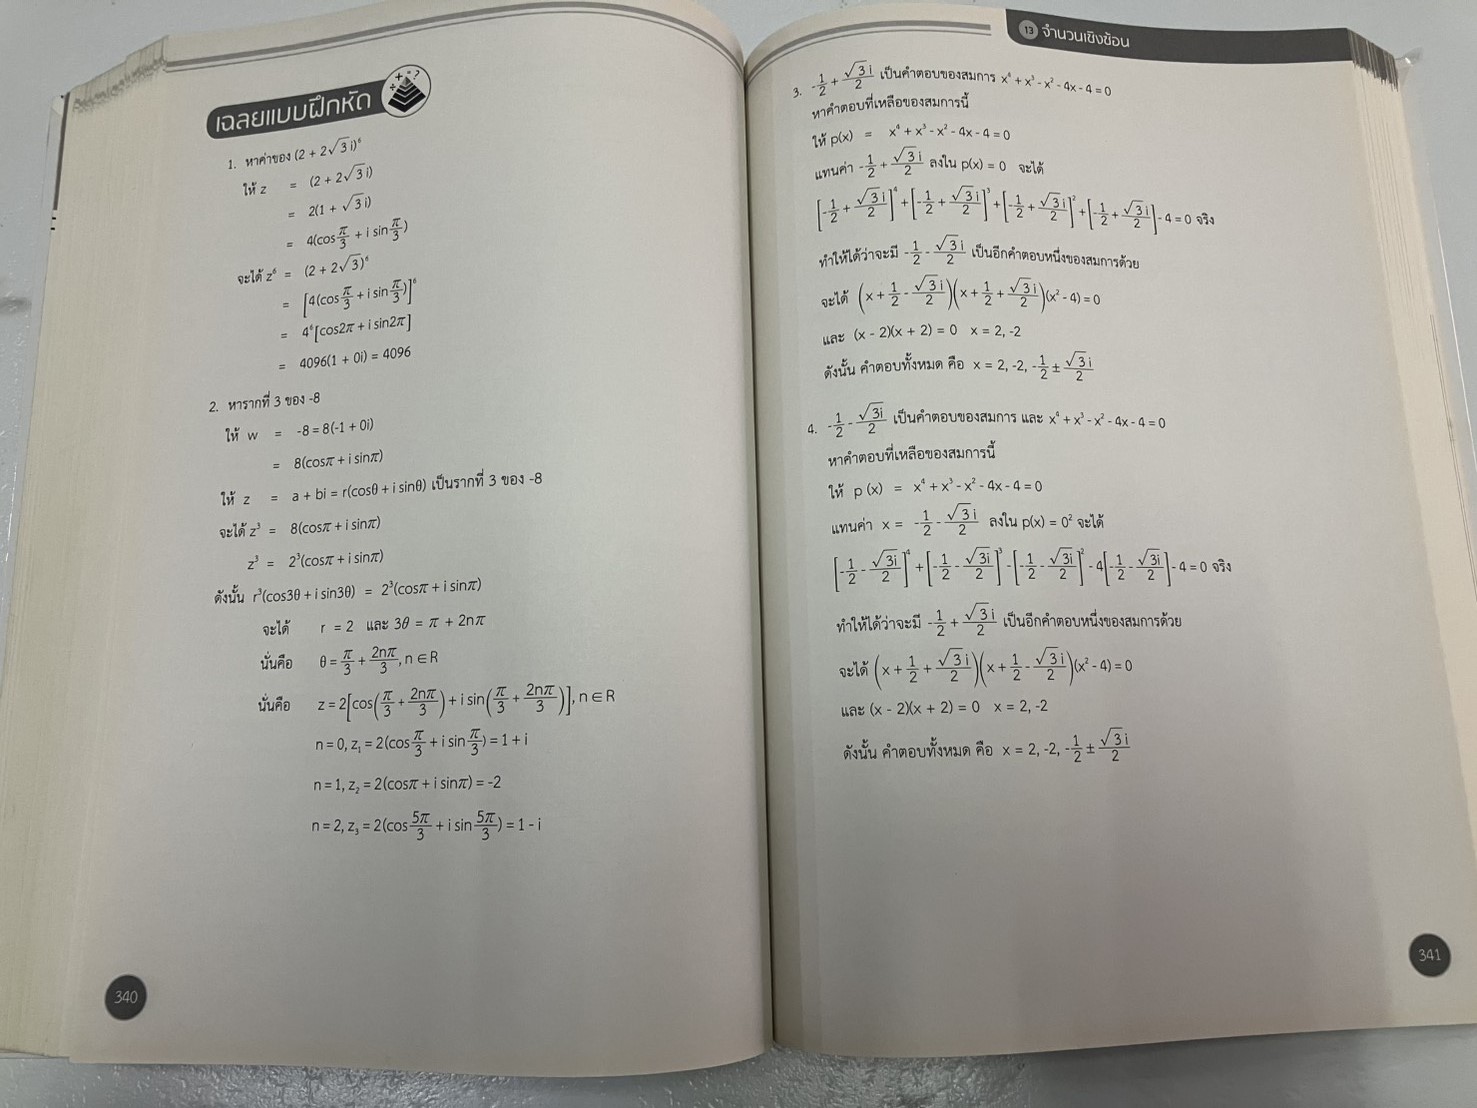 เฉลยแบบฝึกหัด
1. หาค่าของ (2 + 2√3 i)⁶
ให้ z = (2 + 2√3 i)
= 2(1 + √3 i)
= 4(cos π/3 + i sin π/3)
จะได้ z⁶ = (2 + 2√3)⁶
= [4(cos π/3 + i sin π/3)]⁶
= 4⁶[cos2π + i sin2π]
= 4096(1 + 0i) = 4096
2. หารากที่ 3 ของ -8
ให้ w = -8 = 8(-1 + 0i)
= 8(cosπ + i sinπ)
ให้ z = a + bi = r(cosθ + i sinθ) เป็นรากที่ 3 ของ -8
จะได้ z³ = 8(cosπ + i sinπ)
z³ = 2³(cosπ + i sinπ)
ดังนั้น r³(cos3θ + i sin3θ) = 2³(cosπ + i sinπ)
จะได้ r = 2 และ 3θ = π + 2nπ
นั่นคือ θ = π/3 + 2nπ/3, n ∈ R
นั่นคือ z = 2[cos(π/3 + 2nπ/3) + i sin(π/3 + 2nπ/3)], n ∈ R
n = 0, z₁ = 2(cos π/3 + i sin π/3) = 1 + i
n = 1, z₂ = 2(cosπ + i sinπ) = -2
n = 2, z₃ = 2(cos 5π/3 + i sin 5π/3) = 1 - i
340
13 จำนวนเชิงซ้อน
3. -1/2 + √3 i/2 เป็นคำตอบของสมการ x⁴ + x³ - x² - 4x - 4 = 0
หาคำตอบที่เหลือของสมการนี้
ให้ p(x) = x⁴ + x³ - x² - 4x - 4 = 0
แทนค่า -1/2 + √3 i/2 ลงใน p(x) = 0 จะได้
[-1/2 + √3 i/2]⁴ + [-1/2 + √3 i/2]³ + [-1/2 + √3 i/2]² + [-1/2 + √3 i/2] - 4 = 0 จริง
ทำให้ได้ว่าจะมี -1/2 - √3 i/2 เป็นอีกคำตอบหนึ่งของสมการด้วย
จะได้ (x + 1/2 - √3 i/2)(x + 1/2 + √3 i/2)(x² - 4) = 0
และ (x - 2)(x + 2) = 0 x = 2, -2
ดังนั้น คำตอบทั้งหมด คือ x = 2, -2, -1/2 ± √3 i/2
4. -1/2 - √3i/2 เป็นคำตอบของสมการ และ x⁴ + x³ - x² - 4x - 4 = 0
หาคำตอบที่เหลือของสมการนี้
ให้ p (x) = x⁴ + x³ - x² - 4x - 4 = 0
แทนค่า x = -1/2 - √3 i/2 ลงใน p(x) = 0² จะได้
[-1/2 - √3i/2]⁴ + [-1/2 - √3i/2]³ - [-1/2 - √3i/2]² - 4[-1/2 - √3i/2] - 4 = 0 จริง
ทำให้ได้ว่าจะมี -1/2 + √3 i/2 เป็นอีกคำตอบหนึ่งของสมการด้วย
จะได้ (x + 1/2 + √3 i/2)(x + 1/2 - √3 i/2)(x² - 4) = 0
และ (x - 2)(x + 2) = 0 x = 2, -2
ดังนั้น คำตอบทั้งหมด คือ x = 2, -2, -1/2 ± √3 i/2
341